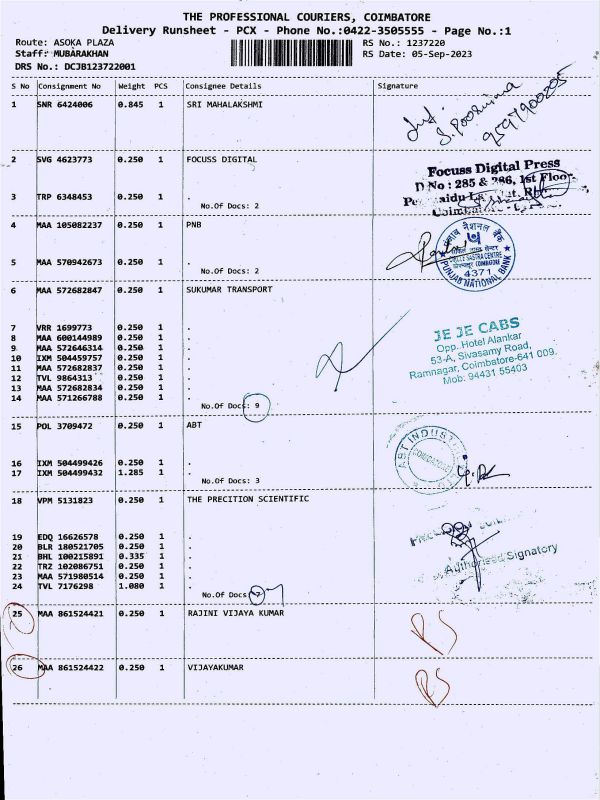 THE PROFESSIONAL COURIERS, COIMBATORE
Delivery Runsheet - PCX - Phone No.:0422-3505555 - Page No.:1
Route: ASOKA PLAZA RS No.: 1237220
Staff: MUBARAKHAN RS Date: 05-Sep-2023
DRS No.: DCJB123722001
S No Consignment No Weight PCS Consignee Details Signature
1 SNR 6424006 0.845 1 SRI MAHALAKSHMI
S. Poornima
2 SVG 4623773 0.250 1 FOCUSS DIGITAL
Focuss Digital Press
D No : 285 & 286, 1st Floor
3 TRP 6348453 0.250 1 .
No.Of Docs: 2
4 MAA 105082237 0.250 1 PNB
5 MAA 570942673 0.250 1 .
No.Of Docs: 2
4371
PUNJAB NATIONAL BANK
6 MAA 572682847 0.250 1 SUKUMAR TRANSPORT
7 VRR 1699773 0.250 1 .
8 MAA 600144989 0.250 1 .
9 MAA 572646314 0.250 1 .
10 IXM 504459757 0.250 1 .
11 MAA 572682837 0.250 1 .
12 TVL 9864313 0.250 1 .
13 MAA 572682834 0.250 1 .
14 MAA 571266788 0.250 1 .
No.Of Docs: 9
JE JE CABS
Opp. Hotel Alankar
53-A, Sivasamy Road,
Ramnagar, Coimbatore-641 009.
Mob: 94431 55403
15 POL 3709472 0.250 1 ABT
16 IXM 504499426 0.250 1 .
17 IXM 504499432 1.285 1 .
No.Of Docs: 3
18 VPM 5131823 0.250 1 THE PRECITION SCIENTIFIC
19 EDQ 16626578 0.250 1 .
20 BLR 180521705 0.250 1 .
21 BHL 100215891 0.335 1 .
22 TRZ 102086751 0.250 1 .
23 MAA 571980514 0.250 1 .
24 TVL 7176298 1.080 1 .
No.Of Docs: 7
Authorised Signatory
25 MAA 861524421 0.250 1 RAJINI VIJAYA KUMAR
RS
26 MAA 861524422 0.250 1 VIJAYAKUMAR
RS